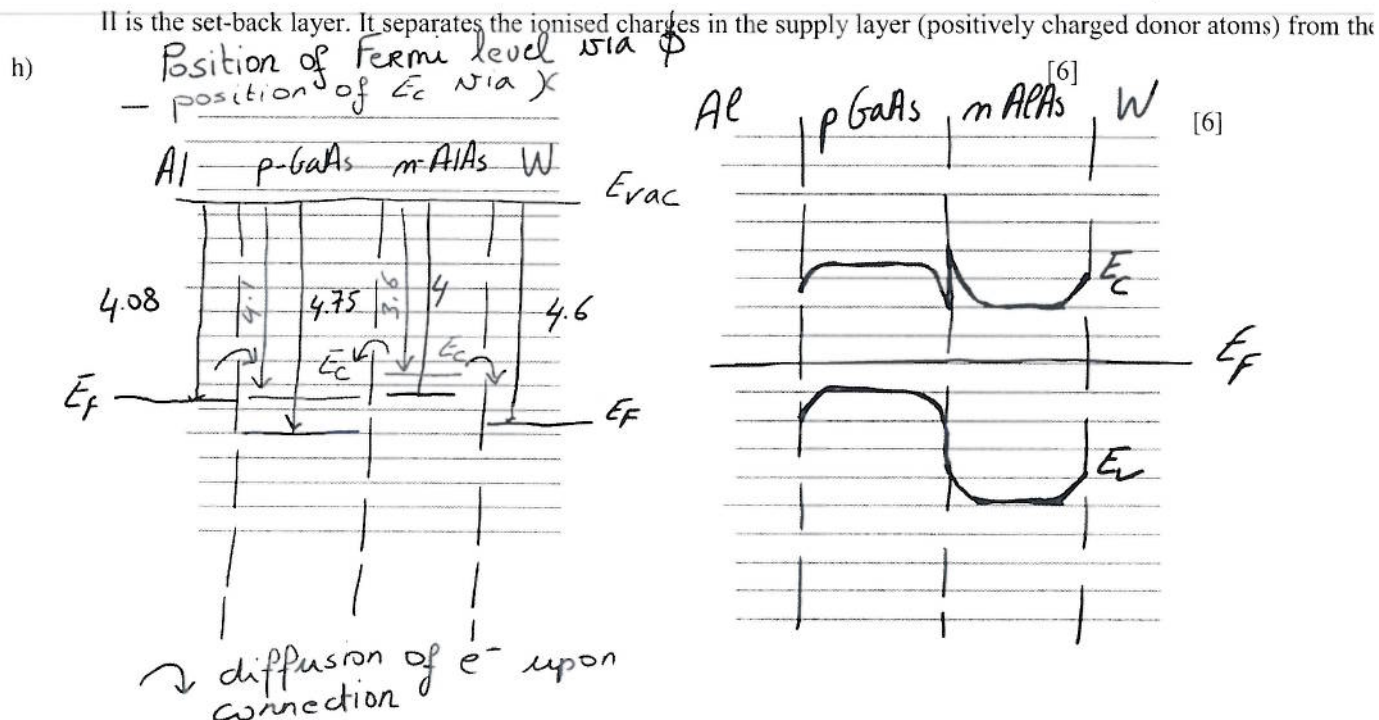 II is the set-back layer. It separates the ionised charges in the supply layer (positively charged donor atoms) from the
h)
Position of Fermi level via ϕ
– position of Ec via χ
[6]
[6]
Al p-GaAs n-AlAs W
Evac
4.08 4.1 4.75 3.6 4 4.6
Ec Ec
EF EF
↷ diffusion of e⁻ upon
connection
Al p GaAs n AlAs W
Ec
EF
Ev